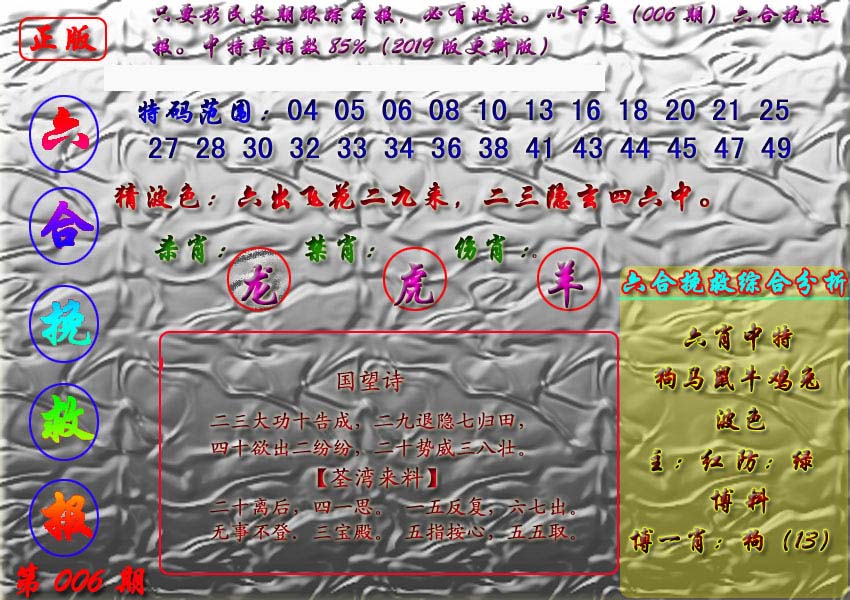 正版
只要彩民长期跟踪本报，必有收获。以下是（006期）六合挽救
报。中特率指数85%（2019版更新版）
六合挽救报
第006期
特码范围：04 05 06 08 10 13 16 18 20 21 25
27 28 30 32 33 34 36 38 41 43 44 45 47 49
猜波色：六出飞花二九来，二三隐玄四六中。
杀肖：龙 禁肖：虎 伤肖：羊
国望诗
二三大功十告成，二九退隐七归田，
四十欲出二纷纷，二十势威三八壮。
【荃湾来料】
二十离后，四一思。一五反复，六七出。
无事不登．三宝殿。五指按心，五五取。
六合挽救综合分析
六肖中特
狗马鼠牛鸡兔
波色
主：红防：绿
博料
博一肖：狗（13）